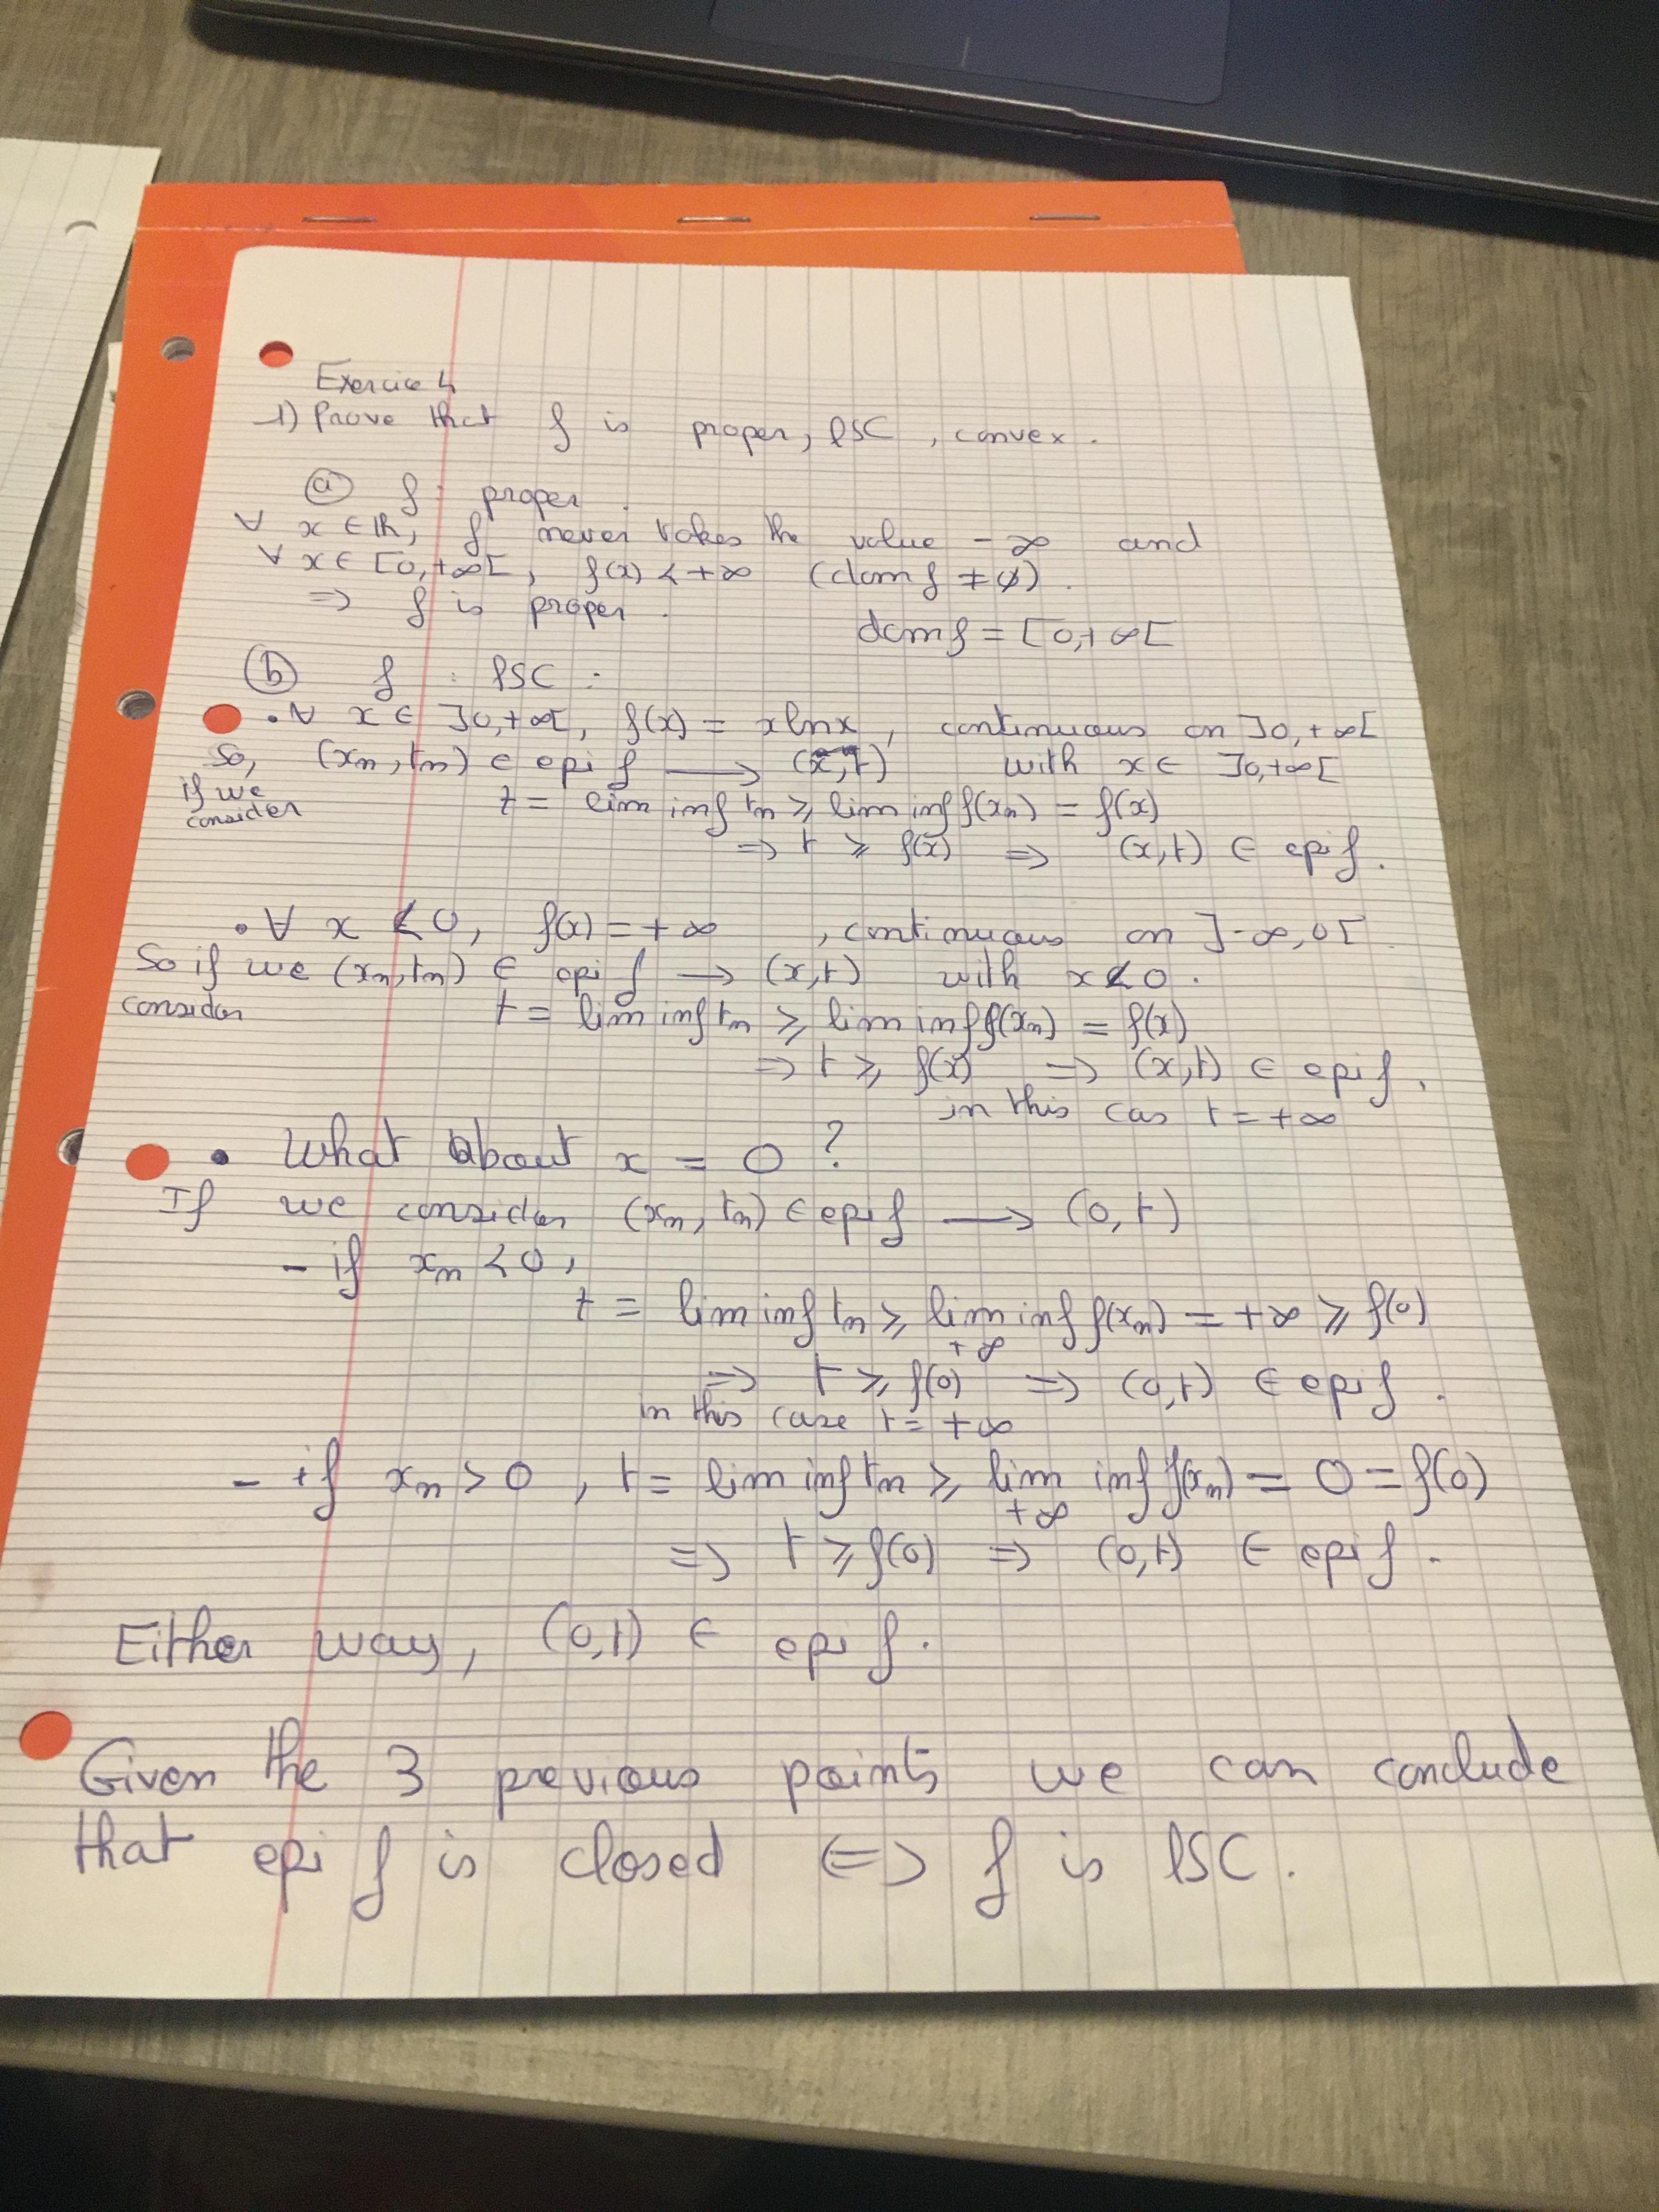 Exercice 4
1) Prove that f is proper, lSC, convex.
(a) f : proper.
∀ x ∈ IR, f never takes the value -∞ and
∀ x ∈ [0,+∞[, f(x) < +∞ (dom f ≠ ∅).
=> f is proper.
dom f = [0,+∞[
(b) f : lSC :
• ∀ x ∈ ]0,+∞[, f(x) = xlnx, continuous on ]0,+∞[
So, if we consider (xn, tn) ∈ epi f → (x,t) with x ∈ ]0,+∞[
t = lim inf tn ≥ lim inf f(xn) = f(x)
=> t ≥ f(x) => (x,t) ∈ epi f.
• ∀ x < 0, f(x) = +∞, continuous on ]-∞,0[
So if we consider (xn,tn) ∈ epi f → (x,t) with x < 0.
t = lim inf tn ≥ lim inf f(xn) = f(x)
=> t ≥ f(x) => (x,t) ∈ epi f.
in this cas t = +∞
• What about x = 0 ?
If we consider (xn, tn) ∈ epi f → (0,t)
- if xn < 0,
t = lim inf tn ≥ lim inf f(xn) = +∞ ≥ f(0)
+∞
=> t ≥ f(0) => (0,t) ∈ epi f.
in this case t = +∞
- if xn > 0, t = lim inf tn ≥ lim inf f(xn) = 0 = f(0)
+∞
=> t ≥ f(0) => (0,t) ∈ epi f.
Either way, (0,t) ∈ epi f.
Given the 3 previous points we can conclude
that epi f is closed <=> f is lSC.